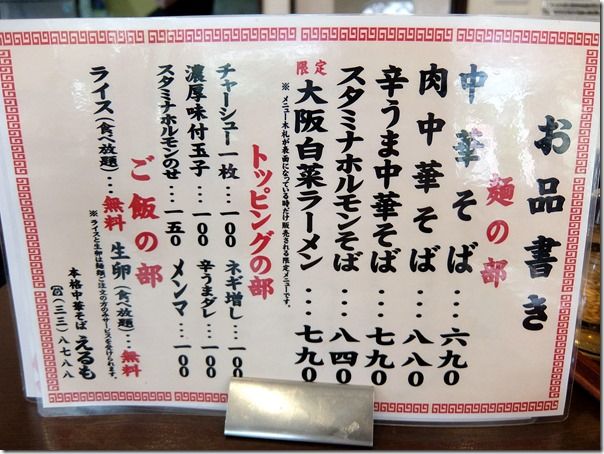 お品書き
麺の部
中華そば…六九0
肉中華そば…八八0
辛うま中華そば…七九0
スタミナホルモンそば…八四0
限定 大阪白菜ラーメン…七九0
※メニュー木札が表面になっている時だけ販売される限定メニューです。
トッピングの部
チャーシュー一枚…一00
ネギ増し…一00
濃厚味付玉子…一00
辛うまダレ…一00
スタミナホルモンのせ…一五0
メンマ…一00
ご飯の部
ライス(食べ放題)…無料
生卵(食べ放題)…無料
※ライスと生卵は麺類ご注文の方のみサービスを受けられます。
本格中華そば えるも
☎(三三)八七八八